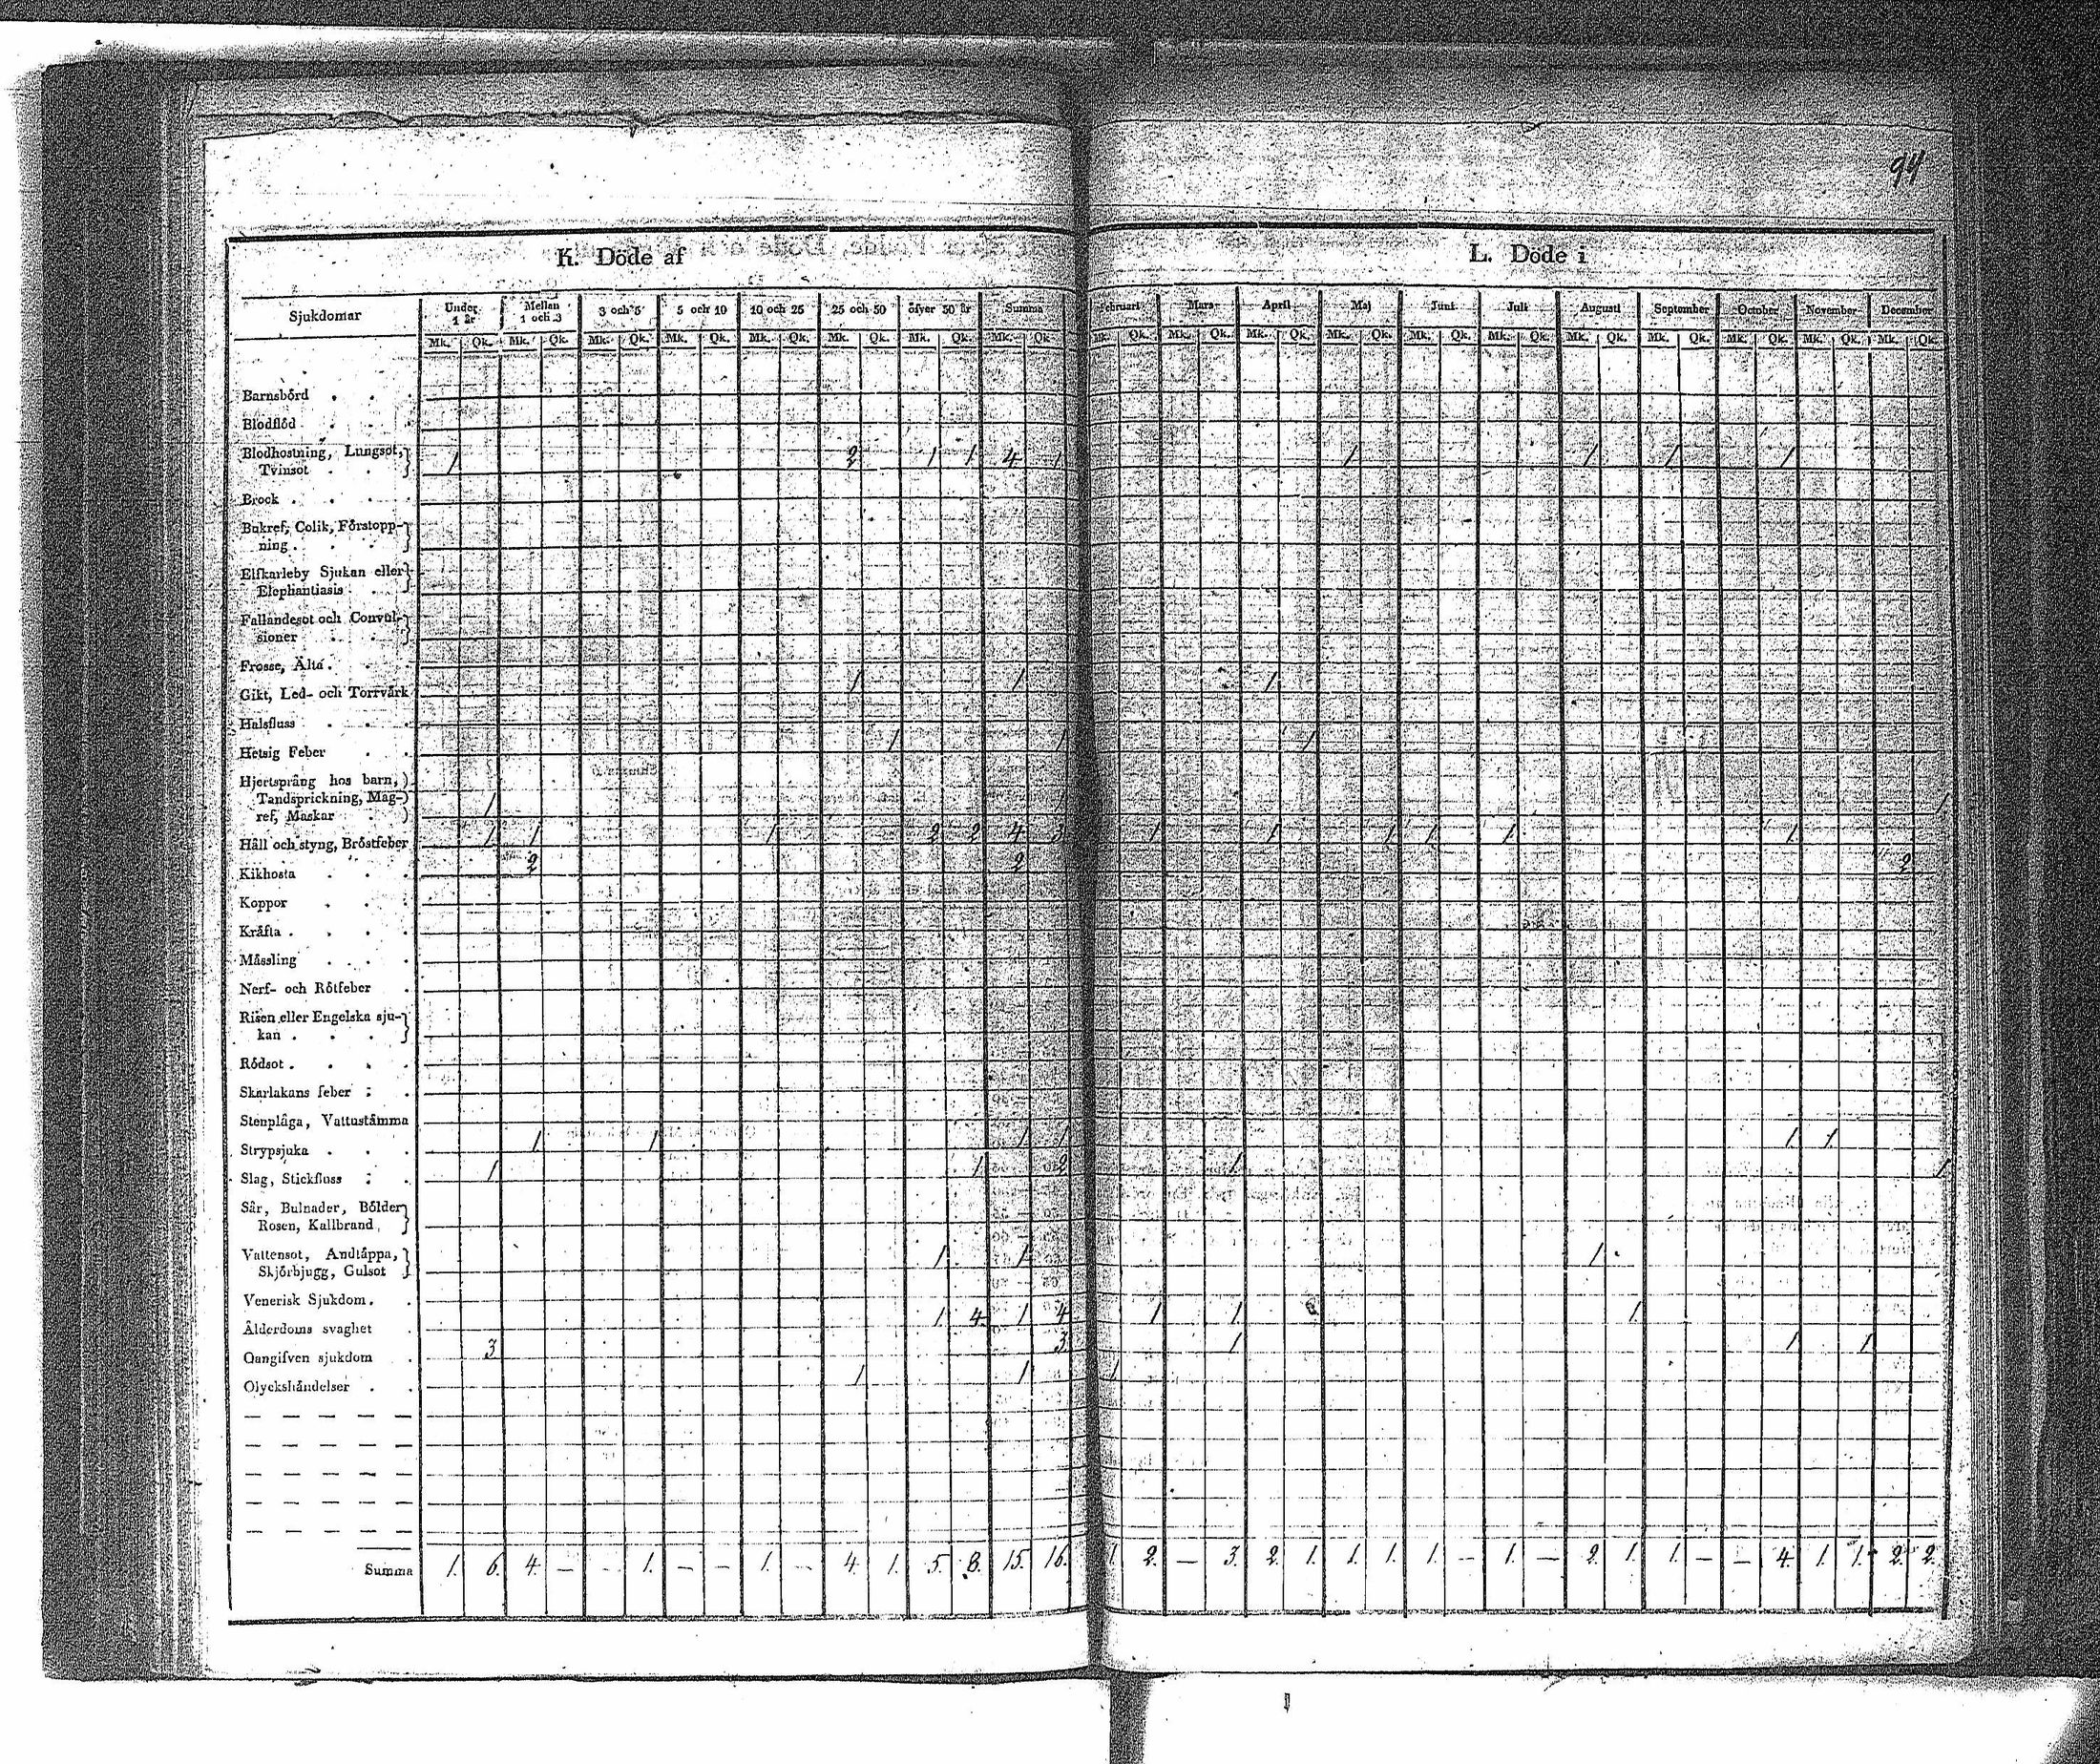 94
K. Döde af
L. Döde i
Sjukdomar
Under 1 år
Mellan 1 och 3
3 och 5
5 och 10
10 och 25
25 och 50
öfver 50 år
Summa
Februari
Mars
April
Maj
Juni
Juli
Augusti
September
October
November
December
Mk. Qk. Mk. Qk. Mk. Qk. Mk. Qk. Mk. Qk. Mk. Qk. Mk. Qk. Mk. Qk. Mk. Qk. Mk. Qk. Mk. Qk. Mk. Qk. Mk. Qk. Mk. Qk. Mk. Qk. Mk. Qk. Mk. Qk. Mk. Qk. Mk. Qk.
Barnsbörd . . .
Blodflöd . . .
Blodhostning, Lungsot,
Tvinsot . . 1 2 1 1 4 1 1 1 1 1
Brock . . . .
Bukref, Colik, Förstopp-
ning . . .
Elfkarleby Sjukan eller
Elephantiasis . .
Fallandesot och Convul-
sioner . . .
Frosse, Älta . . .
Gikt, Led- och Torrvärk 1 1 1
Halsfluss . . .
Hetsig Feber . . 1 1 1
Hjertsprång hos barn,
Tandsprickning, Mag-
ref, Maskar . 1 1 1
Håll och styng, Bröstfeber 1 1 1 2 2 4 3 1 1 1 1 1 1
Kikhosta . . . 2 2 2
Koppor . . .
Kräfta . . . .
Mässling . . .
Nerf- och Rötfeber .
Risen eller Engelska sju-
kan . . .
Rödsot . . . .
Skarlakans feber . .
Stenplåga, Vattustämma
Strypsjuka . . . 1 1 1 1 1 1
Slag, Stickfluss . . 1 1 2 1 1
Sår, Bulnader, Bölder
Rosen, Kallbrand
Vattensot, Andtäppa,
Skjörbjugg, Gulsot 1 1 1
Venerisk Sjukdom . .
Ålderdoms svaghet . 1 4 1 4 1 1 1
Oangifven sjukdom . 3 3 1 1 1
Olyckshändelser . . 1 1 1
— — — — —
— — — — —
— — — — —
— — — — —
— — — — —
Summa 1. 6. 4. — — 1. — — 1. — 4. 1. 5. 8. 15. 16. 1. 2. — 3. 2. 1. 1. 1. 1. — 1. — 2. 1. 1. — — 4. 1. 1. 2. 2.